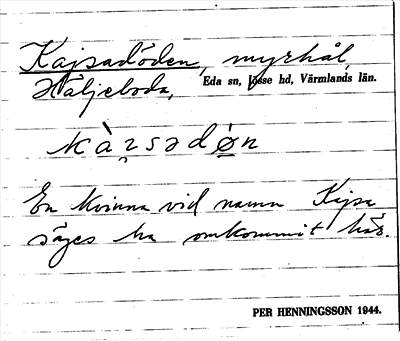 Kajsadöden, myrhål,
Häljeboda, Eda sn, Jösse hd, Värmlands län.
En kvinna vid namn Kajsa
säges ha omkommit här.
PER HENNINGSSON 1944.